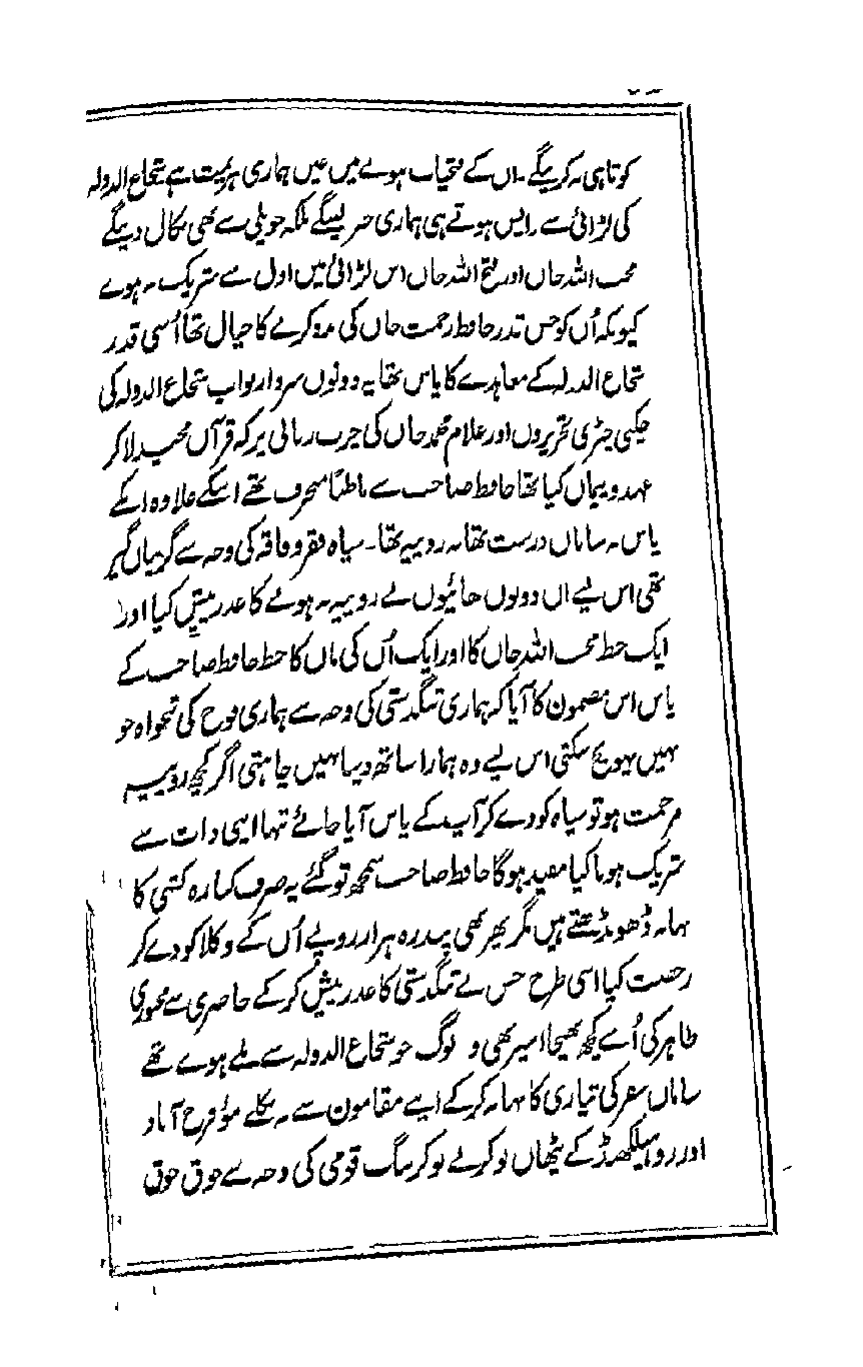 کوتاہی نہ کرینگے۔ ان کے فتحیاب ہونے میں عین ہماری ہزیمت ہے شجاع الدولہ
کی لڑائی سے واپس ہوتے ہی ہماری خبر لینگے بلکہ حویلی سے بھی نکال دینگے
محب اللہ خاں اور فتح اللہ خاں اس لڑائی میں اول سے شریک نہ ہوے
کیونکہ اُن کو جس قدر حافظ رحمت خاں کی مدد کرنے کا خیال تھا اُسی قدر
شجاع الدولہ کے معاہدے کا پاس تھا یہ دونوں سردار نواب شجاع الدولہ کی
چکنی چپڑی تقریروں اور غلام محمد خاں کی چرب زبانی پر کہ قرآن مجید لا کر
عہد و پیمان کیا تھا حافظ صاحب سے باطناً منحرف تھے اسکے علاوہ انکے
پاس نہ سامان درست تھا نہ روپیہ تھا۔ سپاہ فقر و فاقہ کی وجہ سے گریباں گیر
تھی اس لیے ان دونوں بھائیوں نے روپیہ نہ ہونے کا عذر پیش کیا اور
ایک خط محب اللہ خاں کا اور ایک اُن کی ماں کا خط حافظ صاحب کے
پاس اس مضمون کا آیا کہ ہماری تنگدستی کی وجہ سے ہماری فوج کی تنخواہ جو
نہیں پہونچ سکتی اس لیے وہ ہمارا ساتھ دینا نہیں چاہتی اگر کچھ روپیہ
مرحمت ہو تو سپاہ کو دے کر آپ کے پاس آیا جائے تنہا اپنی ذات سے
شریک ہونا کیا مفید ہوگا حافظ صاحب سمجھ تو گئے یہ صرف کنارہ کشی کا
بہانہ ڈھونڈھتے ہیں مگر پھر بھی پندرہ ہزار روپے اُن کے وکلا کو دے کر
رخصت کیا اسی طرح جس نے تنگدستی کا عذر پیش کر کے حاضری سے مجبوری
ظاہر کی اُسے کچھ بھیجا اسپر بھی وہ لوگ جو شجاع الدولہ سے ملے ہوے تھے
سامان سفر کی تیاری کا بہانہ کر کے اپنے مقامون سے نہ نکلے مؤ فرخ آباد
اور روہیلکھنڈ کے پٹھان نوکر بے نوکر ننگ قومی کی وجہ سے جوق جوق